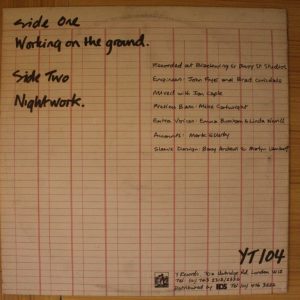 Side One
Working on the ground.
Side Two
Nightwork.
Recorded at Blackwing & Berry St Studios
Engineers: John Fryer and Brad Grisdale
Mixed with Ian Caple
Fretless Bass: Mike Cartwright
Extra Voices: Emma Burnham & Linda Nevill
Accounts: Mark
Sleeve Design: Barry Andrews & Martyn Lambert
YT104
Y Records, Uxbridge Rd, London W12
Tel
Distributed by